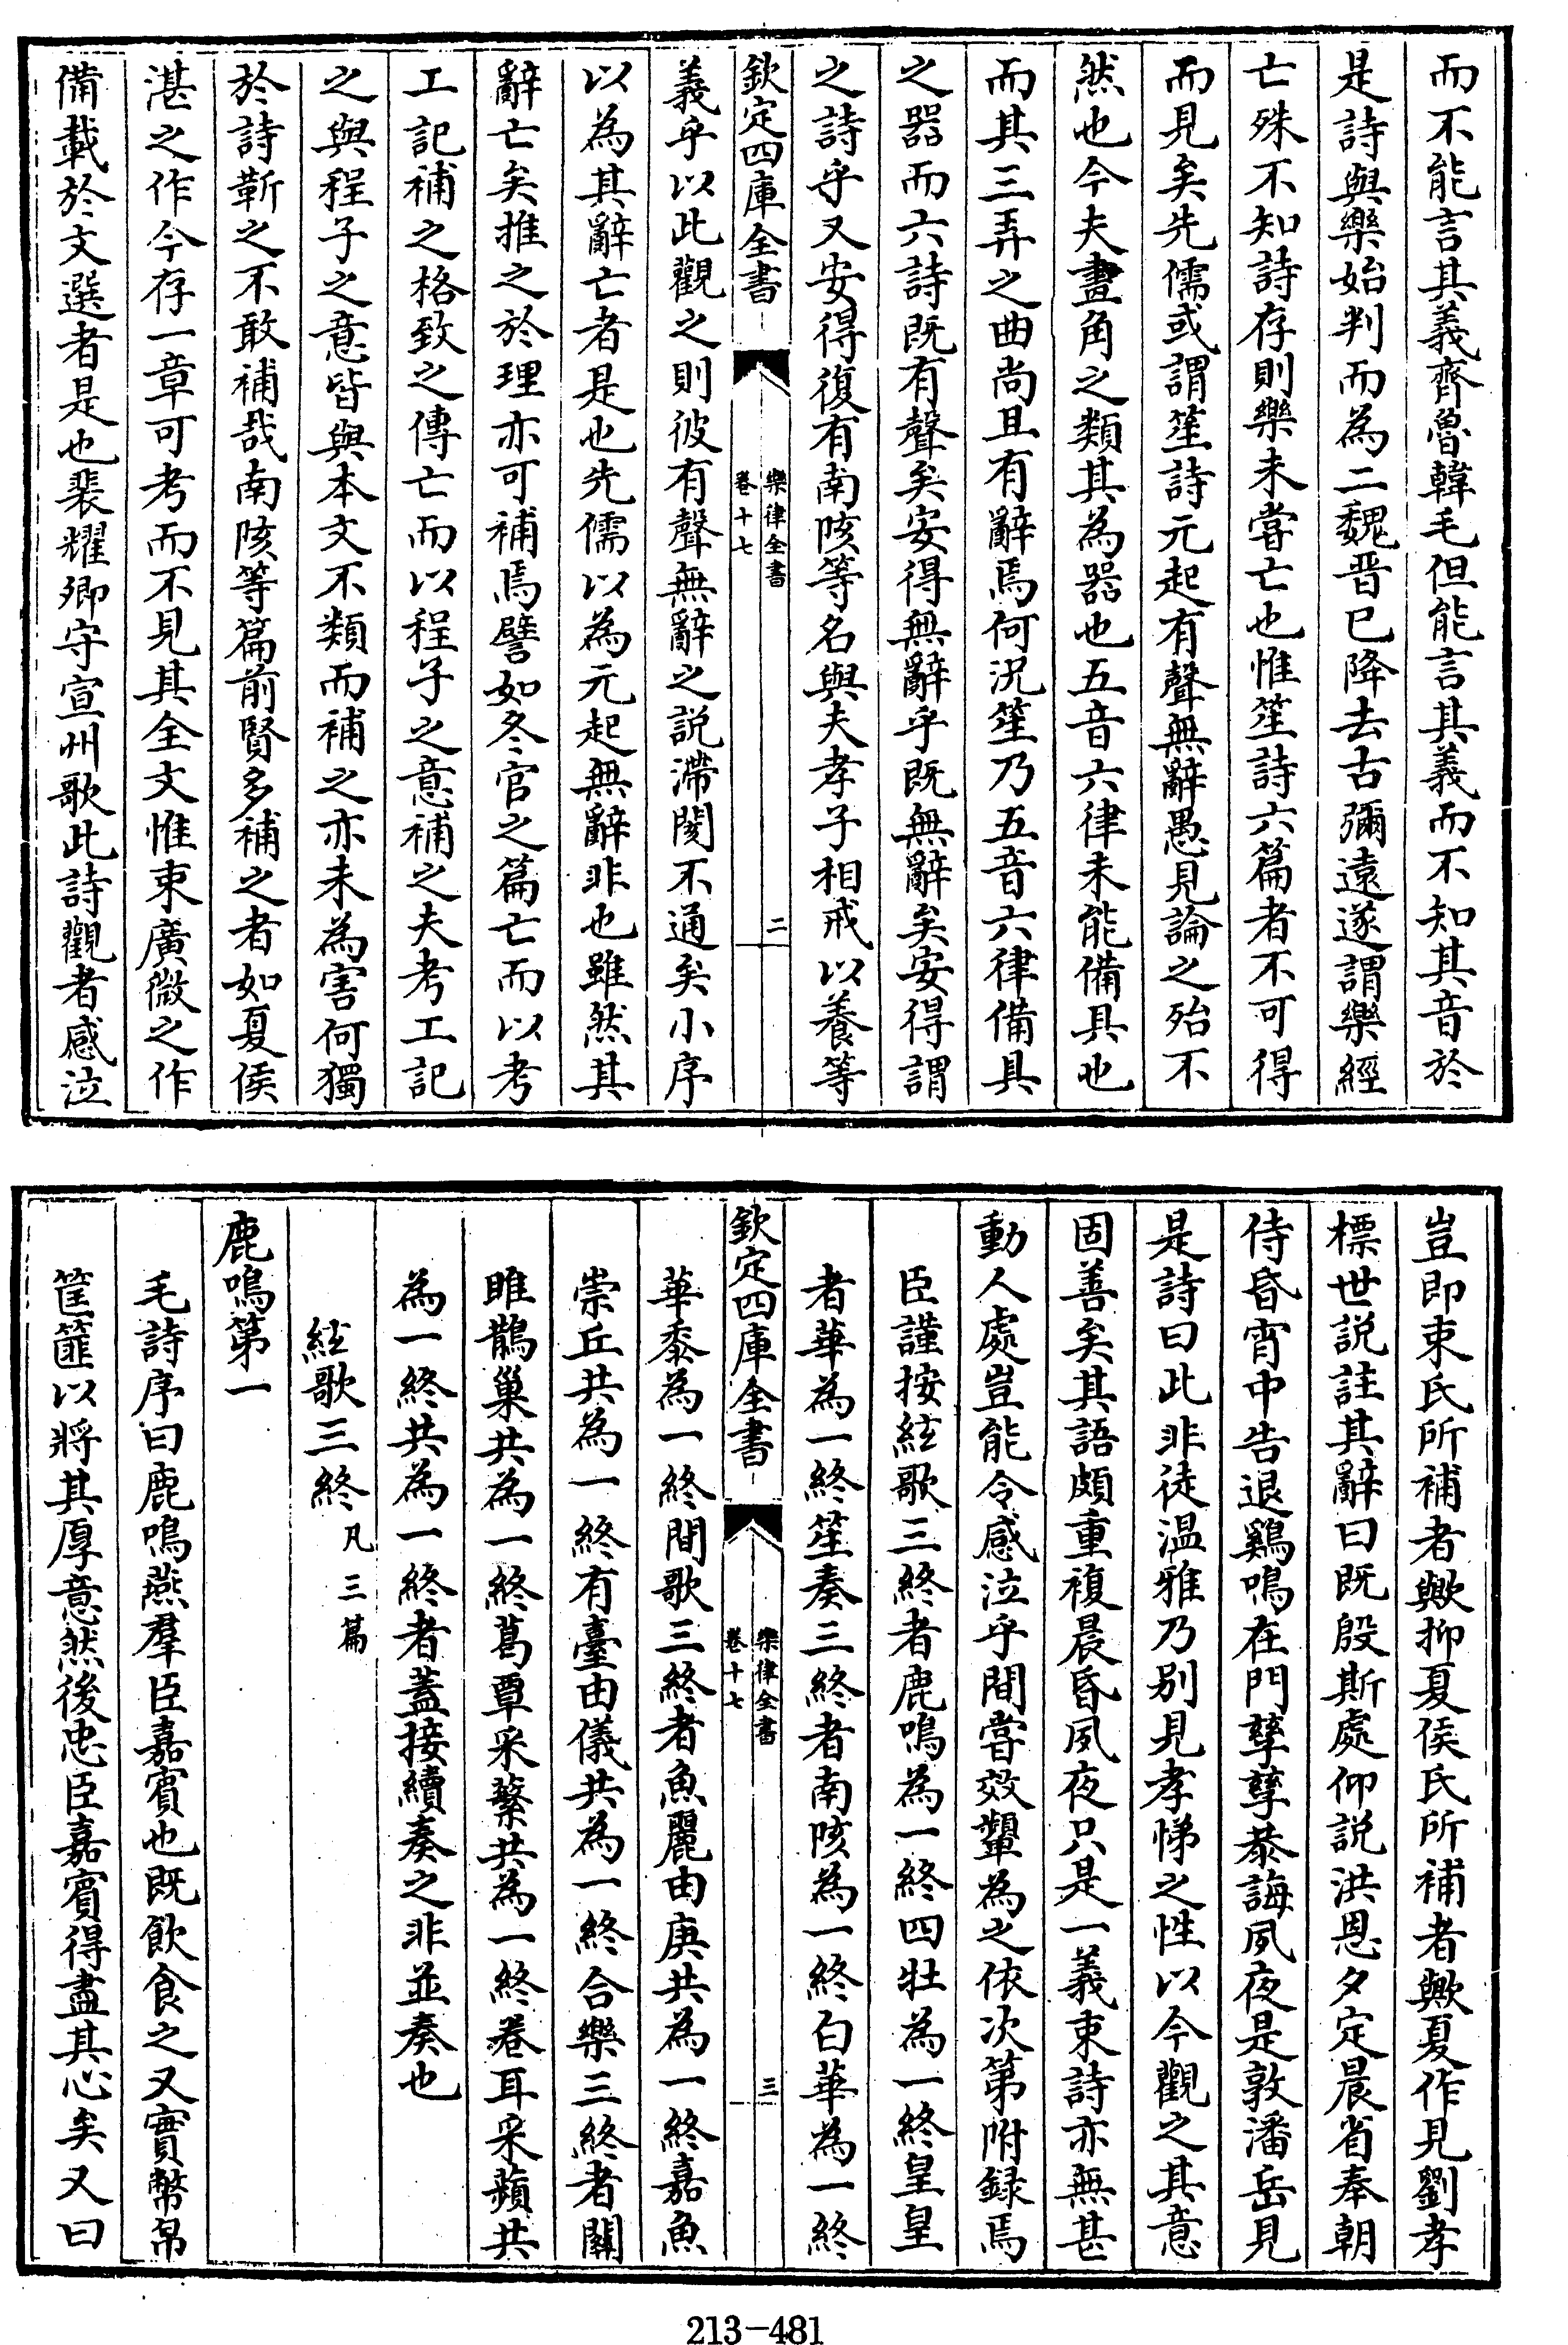 而不能言其義齊魯韓毛但能言其義而不知其音於
是詩與樂始判而為二魏晉已降去古彌遠遂謂樂經
亡殊不知詩存則樂未嘗亡也惟笙詩六篇者不可得
而見矣先儒或謂笙詩元起有聲無辭愚見論之殆不
然也今夫畫角之類其為器也五音六律未能備具也
而其三弄之曲尚且有辭焉何況笙乃五音六律備具
之器而六詩既有聲矣安得無辭乎既無辭矣安得謂
之詩乎又安得復有南陔等名與夫孝子相戒以養等
欽定四庫全書
樂律全書
卷十七
二
義乎以此觀之則彼有聲無辭之説滯閡不通矣小序
以為其辭亡者是也先儒以為元起無辭非也雖然其
辭亡矣推之於理亦可補焉譬如冬官之篇亡而以考
工記補之格致之傳亡而以程子之意補之夫考工記
之與程子之意皆與本文不類而補之亦未為害何獨
於詩靳之不敢補哉南陔等篇前賢多補之者如夏侯
湛之作今存一章可考而不見其全文惟束廣微之作
備載於文選者是也裴耀卿守宣州歌此詩觀者感泣
豈即束氏所補者歟抑夏侯氏所補者歟夏作見劉孝
標世説註其辭曰既殷斯處仰説洪恩夕定晨省奉朝
侍昏宵中告退鷄鳴在門孳孳恭誨夙夜是敦潘岳見
是詩曰此非徒温雅乃别見孝悌之性以今觀之其意
固善矣其語頗重複晨昏夙夜只是一義束詩亦無甚
動人處豈能令感泣乎間嘗效顰為之依次第附録焉
臣謹按絃歌三終者鹿鳴為一終四牡為一終皇皇
者華為一終笙奏三終者南陔為一終白華為一終
欽定四庫全書
樂律全書
卷十七
三
華黍為一終間歌三終者魚麗由庚共為一終嘉魚
崇丘共為一終有臺由儀共為一終合樂三終者關
雎鵲巢共為一終葛覃采蘩共為一終卷耳采蘋共
為一終共為一終者蓋接續奏之非並奏也
絃歌三終凡三篇
鹿鳴第一
毛詩序曰鹿鳴燕羣臣嘉賓也既飲食之又實幣帛
筐篚以將其厚意然後忠臣嘉賓得盡其心矣又曰
213-481